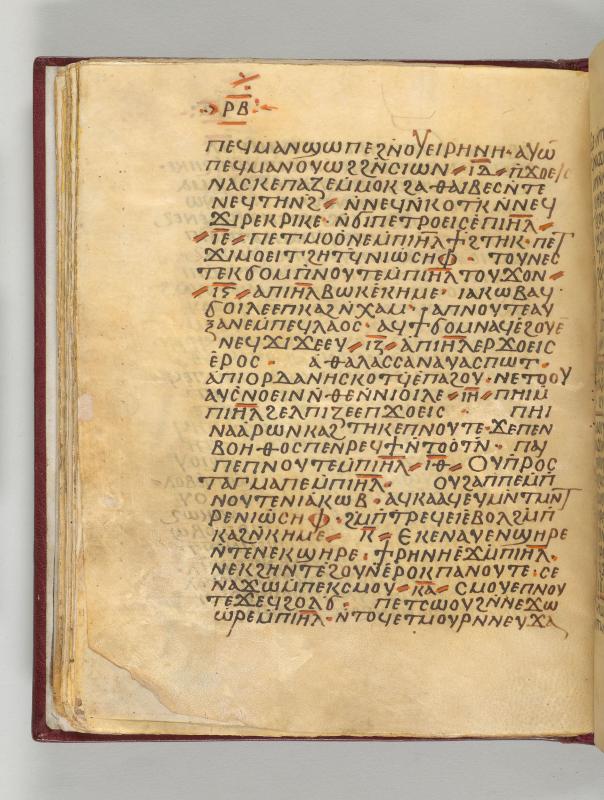 ⲣⲃ
ⲡⲉϥⲙⲁⲛϣⲱⲡⲉϩⲛⲟⲩⲉⲓⲣⲏⲛⲏ· ⲁⲩⲱ
ⲡⲉϥⲙⲁⲛⲟⲩⲱϩϩⲛⲥⲓⲱⲛ ⲓⲇ ⲡϫⲟⲉⲓⲥ
ⲛⲁⲥⲕⲉⲡⲁⲍⲉⲙⲙⲟⲕϩⲁⲑⲁⲓⲃⲉⲥⲛⲧⲉ
ⲛⲉϥⲧⲛϩ· ⲛⲛⲉϥⲛⲕⲟⲧⲕⲛⲛⲉϥ
ϫⲓⲣⲉⲕⲣⲓⲕⲉ· ⲛϭⲓⲡⲉⲧⲣⲟⲉⲓⲥⲉⲡⲓⲏⲗ
ⲓⲉ ⲡⲉⲧⲙⲟⲟⲛⲉⲙⲡⲓⲏⲗϯϩⲧⲏⲕ· ⲡⲉⲧ
ϫⲓⲙⲟⲉⲓⲧϩⲏⲧϥⲛⲓⲱⲥⲏⲫ· ⲧⲟⲩⲛⲉⲥ
ⲧⲉⲕϭⲟⲙⲡⲛⲟⲩⲧⲉⲙⲡⲓⲏⲗⲧⲟⲩϫⲟⲛ
ⲓⲋ ⲁⲡⲓⲏⲗⲃⲱⲕⲉⲕⲏⲙⲉ· ⲓⲁⲕⲱⲃⲁϥ
ϭⲟⲓⲗⲉⲉⲡⲕⲁϩⲛⲭⲁⲙ· ⲁⲡⲛⲟⲩⲧⲉⲁⲩ
ⲝⲁⲛⲉⲙⲡⲉϥⲗⲁⲟⲥ· ⲁϥϯϭⲟⲙⲛⲁϥⲉϩⲟⲩⲉ
ⲛⲉϥϫⲓϫⲉⲉⲩ ⲓⲍ ⲁⲡⲓⲏⲗⲉⲣϫⲟⲉⲓⲥ
ⲉⲣⲟⲥ· ⲁⲑⲁⲗⲁⲥⲥⲁⲛⲁⲩⲁⲥⲡⲱⲧ·
ⲁⲡⲓⲟⲣⲇⲁⲛⲏⲥⲕⲟⲧϥⲉⲡⲁϩⲟⲩ· ⲛⲉⲧⲟⲟⲩ
ⲁⲩⲥⲛⲟⲉⲓⲛⲛⲑⲉⲛⲛⲓⲟⲓⲗⲉ ⲓⲏ ⲡⲏⲓⲙ
ⲡⲓⲏⲗϩⲉⲗⲡⲓⲍⲉⲉⲡϫⲟⲉⲓⲥ ⲡⲏⲓ
ⲛⲁⲁⲣⲱⲛⲕⲁϩⲧⲏⲕⲉⲡⲛⲟⲩⲧⲉ· ϫⲉⲡⲉⲛ
ⲃⲟⲏⲑⲟⲥⲡⲉⲛⲣⲉϥϯⲛⲧⲟⲟⲧⲛ· ⲡⲁⲓ
ⲡⲉⲡⲛⲟⲩⲧⲉⲙⲡⲓⲏⲗ ⲓⲑ ⲟⲩⲡⲣⲟⲥ
ⲧⲁⲅⲙⲁⲡⲉⲙⲡⲓⲏⲗ· ⲟⲩϩⲁⲡⲡⲉⲙⲡ
ⲛⲟⲩⲧⲉⲛⲓⲁⲕⲱⲃ· ⲁϥⲕⲁⲁϥⲉⲩⲙⲛⲧⲙⲛⲧ
ⲣⲉⲛⲓⲱⲥⲏⲫ· ϩⲙⲡⲧⲣⲉϥⲉⲓⲉⲃⲟⲗϩⲙⲡ
ⲕⲁϩⲛⲕⲏⲙⲉ ⲕ ⲉⲕⲉⲛⲁⲩⲉⲛϣⲏⲣⲉ
ⲛⲧⲉⲛⲉⲕϣⲏⲣⲉ· ϯⲣⲏⲛⲏⲉϫⲙⲡⲓⲏⲗ·
ⲛⲉⲕϩⲏⲛⲧⲉϩⲟⲩⲛⲉⲣⲟⲕⲡⲁⲛⲟⲩⲧⲉ· ⲥⲉ
ⲛⲁϫⲱⲙⲡⲉⲕⲥⲙⲟⲩ ⲕⲁ ⲥⲙⲟⲩⲉⲡⲛⲟⲩ
ⲧⲉϫⲉϥϩⲟⲗϭ· ⲡⲉⲧⲥⲱⲟⲩϩⲛⲛⲉϫⲱ
ⲱⲣⲉⲙⲡⲓⲏⲗ· ⲛⲧⲟϥⲉⲧⲙⲟⲩⲣⲛⲛⲉⲩϫⲁ